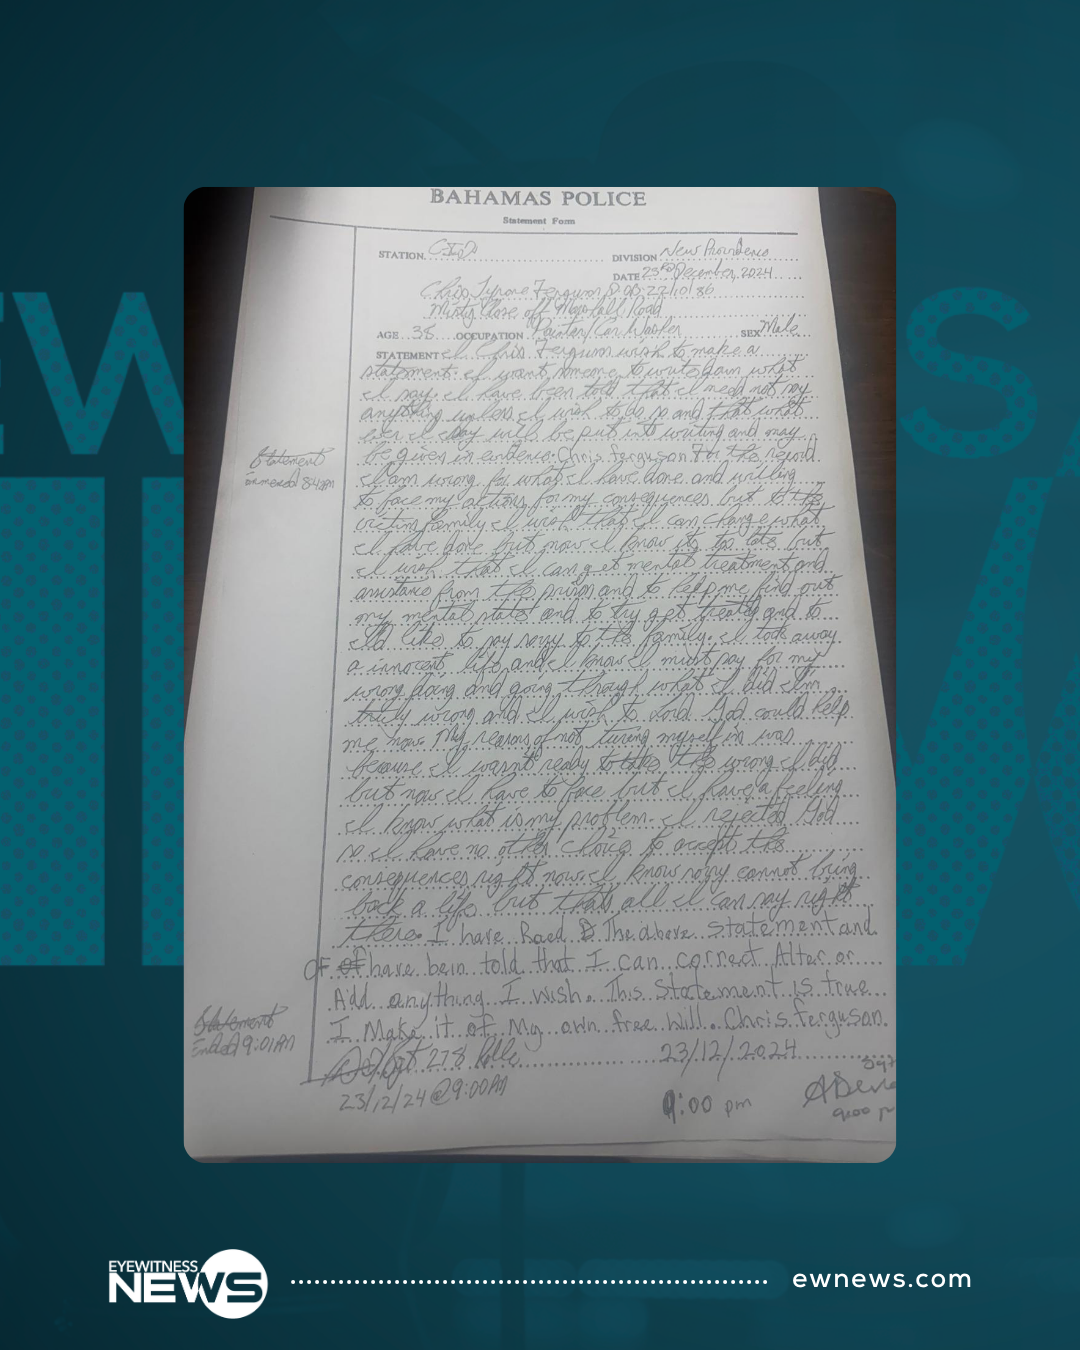 BAHAMAS POLICE
Statement Form
STATION. C.I.D. DIVISION New Providence
DATE 23rd December, 2024
Chris Tyrone Ferguson D.O.B. 22/10/86
Misty Close off Marshall Road
AGE 38 OCCUPATION Painter/Car Washer SEX Male
STATEMENT I Chris Ferguson wish to make a
statement. I want someone to write down what
I say. I have been told that I need not say
anything unless I wish to do so and that what
ever I say will be put into writing and may
be given in evidence. Chris ferguson For the record
Statement
commenced 8:42pm
I am wrong for what I have done and willing
to face my actions for my consequences but to the
victim family I wish that I can change what
I have done but now I know its too late but
I wish that I can get mental treatment and
assistance from the prison and to help me find out
my mental state and to try get treated and to
I'd like to say sorry to the family. I took away
a innocent life and I know I must pay for my
wrong doing and going through what I did I'm
truly wrong and I wish to Lord God could help
me now. My reasons of not turing myself in was
because I wasn't ready to the wrong I did
but now I have to face but I have a feeling
I know what is my problem. I rejected God
so I have no other choice to accept the
consequences right now. I know sorry cannot bring
back a life but that's all I can say right
there. I have Raed The above statement and
OF have bein told that I can correct Alter or
Add anything I wish. This Statement is true
I Make it of My own free Will. Chris ferguson.
Statement
Ended 9:01PM
Sgt 278 23/12/2024
23/12/24 @ 9:00PM
9:00 pm
Sgt
9:00 p
EYEWITNESS
NEWS
ewnews.com